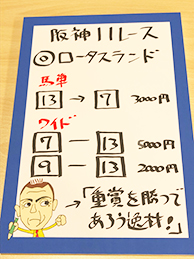 阪神11レース
◎ロータスランド
馬単
13 → 7 3000円
ワイド
7 ― 13 5000円
9 ― 13 2000円
→「重賞を勝つで
あろう逸材!」